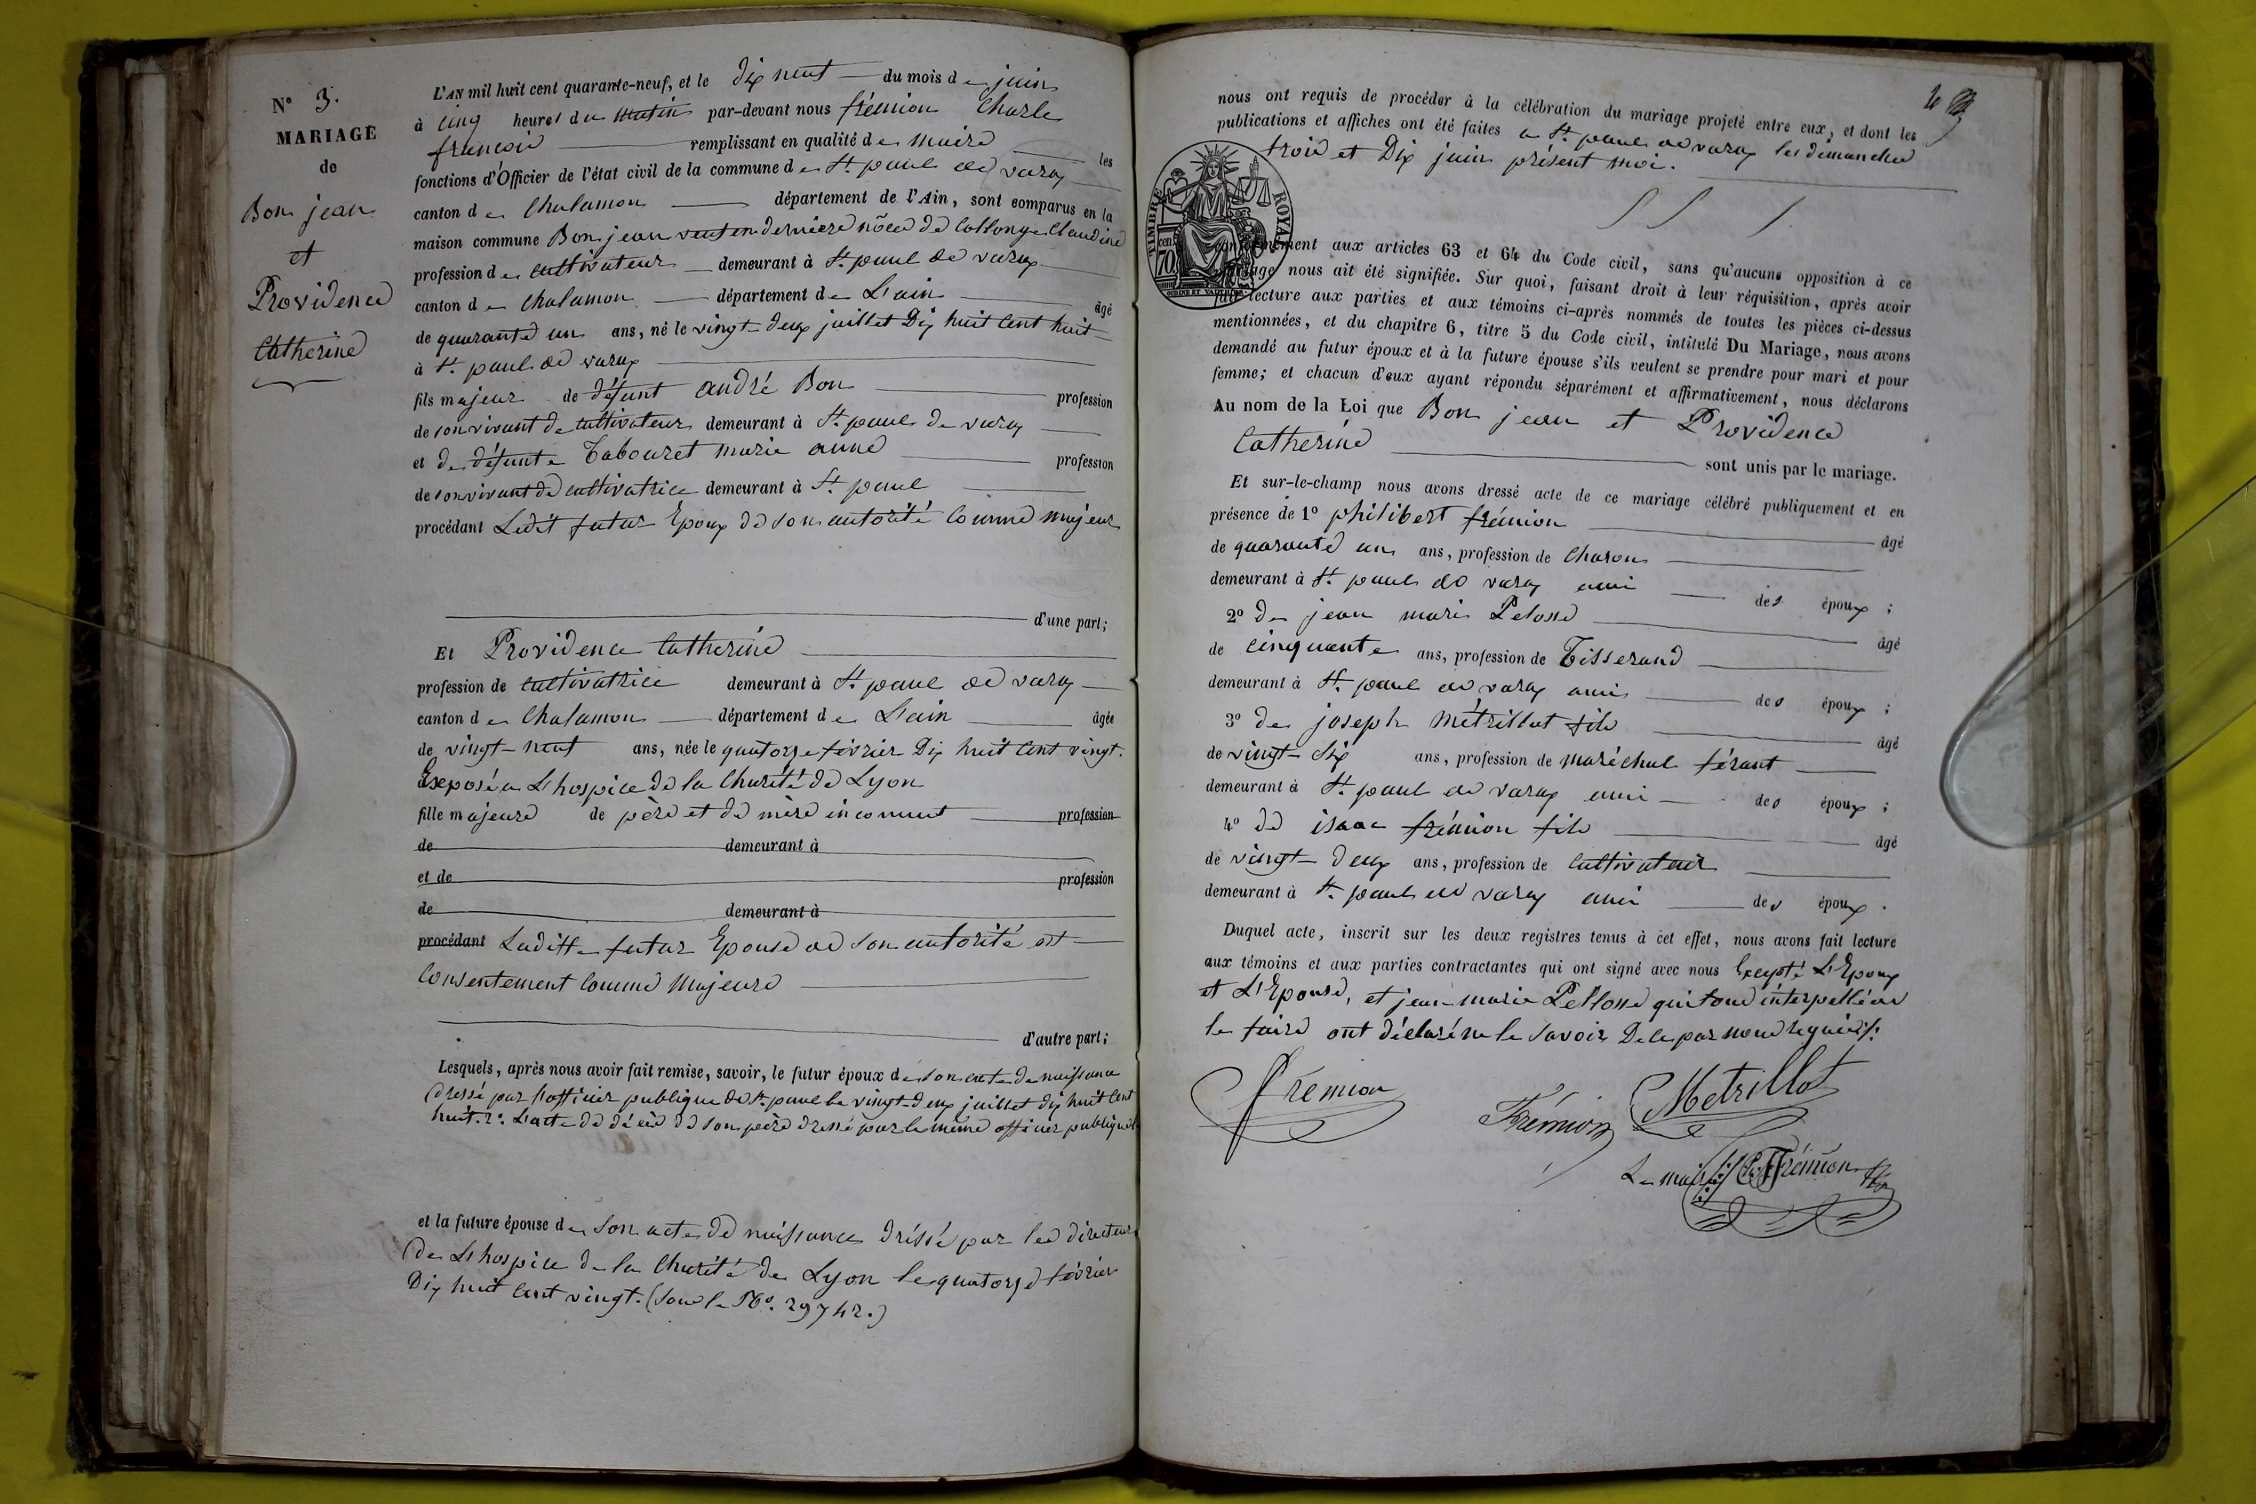 N° 3.
MARIAGE
de
Bon jean
et
Providence
Catherine
L'AN mil huit cent quarante-neuf, et le dix neuf du mois de juin
à cinq heures du matin par-devant nous frémion Charle
francois remplissant en qualité de maire les
fonctions d'Officier de l'état civil de la commune de St. paul de varax
canton de Chalamon département de l'Ain, sont comparus en la
maison commune Bon jean veuf en derniere nôce de Collonge Claudine
profession de cultivateur demeurant à St. paul de varax
canton de Chalamon département de L'ain âgé
de quarante un ans, né le vingt deux juillet Dix huit Cent huit
à St. paul de varax
fils majeur de défunt andré Bon profession
de son vivant de cultivateur demeurant à St. paul de varax
et de défunte Tabouret marie anne profession
de son vivant de cultivatrice demeurant à St. paul
procédant Ledit futur Epoux de son autorité Comme majeur
d'une part;
Et Providence Catherine
profession de cultivatrice demeurant à St. paul de varax
canton de Chalamon département de L'ain âgée
de vingt-neuf ans, née le quatorze février Dix huit Cent vingt.
Exposé a L'hospice de la Charité de Lyon
fille majeure de père et de mère inconnut profession
de demeurant à
et de profession
de demeurant à
procédant Laditte futur Epouse de son autorité et
Consentement Comme Majeure
d'autre part;
Lesquels, après nous avoir fait remise, savoir, le futur époux de son acte de naissance
dressé par l'officier publique de St. paul le vingt-deux juillet dix huit Cent
huit. 2°: L'acte de décès de son père dressé par le même officier publique
et la future épouse de son acte de naissance dréssé par les directeurs
de L'hospice de la Charité de Lyon le quatorze février
Dix huit Cent vingt. (sous le No. 29742.)
nous ont requis de procéder à la célébration du mariage projeté entre eux, et dont les
publications et affiches ont été faites a St. paul de varax les dimanches
trois et Dix juin présent moi.
TIMBRE ROYAL
cen. 70
conformément aux articles 63 et 64 du Code civil, sans qu'aucune opposition à ce
mariage nous ait été signifiée. Sur quoi, faisant droit à leur réquisition, après avoir
fait lecture aux parties et aux témoins ci-après nommés de toutes les pièces ci-dessus
mentionnées, et du chapitre 6, titre 5 du Code civil, intitulé Du Mariage, nous avons
demandé au futur époux et à la future épouse s'ils veulent se prendre pour mari et pour
femme; et chacun d'eux ayant répondu séparément et affirmativement, nous déclarons
Au nom de la Loi que Bon jean et Providence
Catherine sont unis par le mariage.
Et sur-le-champ nous avons dressé acte de ce mariage célébré publiquement et en
présence de 1° philibert frémion âgé
de quarante un ans, profession de Charon
demeurant à St. paul de varax ami des époux ;
2° de jean marie Pelosse âgé
de cinquante ans, profession de Tisserand
demeurant à St. paul de varax ami des époux ;
3° de joseph métrillot fils âgé
de vingt-six ans, profession de maréchal férant
demeurant à St. paul de varax ami des époux ;
4° de isaac frémion fils âgé
de vingt-deux ans, profession de Cultivateur
demeurant à St. paul de varax ami des époux .
Duquel acte, inscrit sur les deux registres tenus à cet effet, nous avons fait lecture
aux témoins et aux parties contractantes qui ont signé avec nous Excepté L'Epoux
et L'Epouse, et jean-marie Pellosse qui interpellé de
le faire ont déclaré ne le savoir De ce par nous requis.
Frémion
Frémion
Metrillot
Le maire Frémion